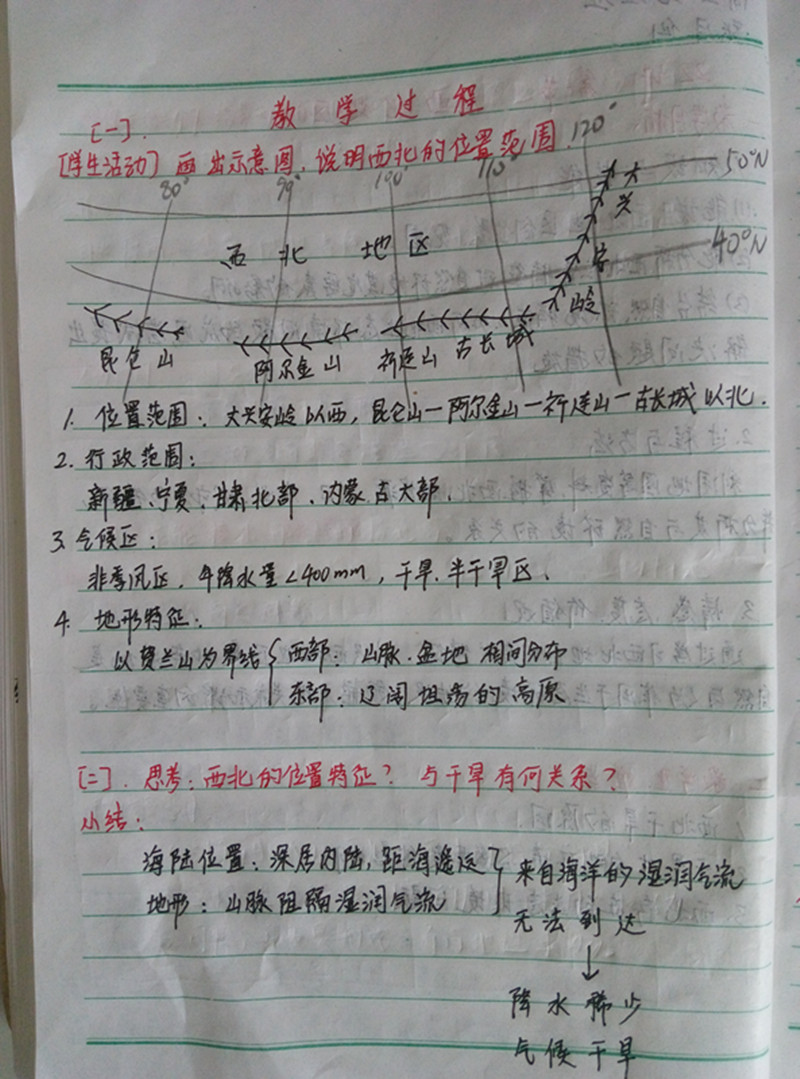 教学过程
[一].
[学生活动] 画出示意图,说明西北的位置范围.
80° 90° 100° 110° 120°
50°N
40°N
西北地区
大兴安岭
昆仑山 阿尔金山 祁连山 古长城
1. 位置范围: 大兴安岭以西, 昆仑山一阿尔金山一祁连山一古长城以北.
2. 行政范围:
新疆、宁夏、甘肃北部、内蒙古大部.
3. 气候区:
非季风区, 年降水量<400mm, 干旱、半干旱区、
4. 地形特征:
以贺兰山为界线{西部: 山脉、盆地 相间分布
东部: 辽阔坦荡的高原
[二]. 思考: 西北的位置特征? 与干旱有何关系?
小结:
海陆位置: 深居内陆, 距海遥远
地形: 山脉阻隔湿润气流
来自海洋的湿润气流
无法到达
↓
降水稀少
气候干旱